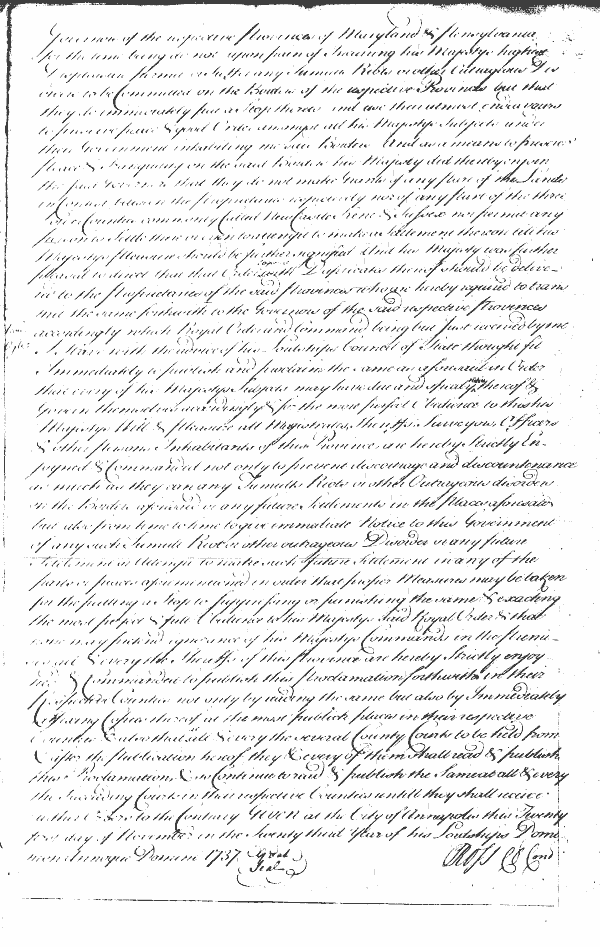 Governors of the respective Provinces of Maryland & Pensylvania
for the time being do not upon pain of Incurring his Majestys highest
Displeasure permit or Suffer any Tumults Riots or other Outragious Dis
orders to be Committed on the Borders of the respective Provinces but that
they do immediately put a Stop thereto and use their utmost endeavours
to preserve peace & good Order amongst all his Majestys Subjects under
their Government inhabiting the said Borders And as a means to preserve
Peace & Tranquility on the said Borders his Majesty did thereby enjoin
the said Governors that they do not make Grants of any part of the Lands
in Contest between the Proprietaries respectively nor of any part of the three
Lower Counties commonly Called New Castle Kent & Sussex nor permit any
person to Settle there or even to attempt to make a Settlement thereon till his
Majestys Pleasure should be further signified And his Majesty was further
pleased to direct that that Order with Duplicates thereof should be delive-
red to the Proprietaries of the said Provinces who are hereby required to trans
mit the same forthwith to the Governors of the said respective Provinces
accordingly which Royal Order and Command being but just received by me
I have with the advice of his Lordships Council of State thought fit
Immediately to publish and proclaim the same as aforesaid in Order
that every of his Majestys Subjects may have due and speedy Notice thereof &
Govern themselves accordingly & for the more perfect Obedience to this his
Majestys Will & pleasure all Magistrates Sheriffs Surveyors Officers
& other persons Inhabitants of this Province are hereby Strictly En-
joyned & Commanded not only to prevent discourage and discountenance
as much as they can any Tumults Riots or other Outragious disorders
on the Borders aforesaid or any future Settlements in the places aforesaid
but also from time to time to give immediate Notice to this Government
of any such Tumult Riot or other outrageous Disorder or any future
Settlement or Attempt to make such future Settlement in any of the
parts or places aforementioned in order that proper Measures may be taken
for the putting a Stop to suppressing or punishing the same & exacting
the most perfect & full Obedience to his Majestys Said Royal Order & that
none may pretend ignorance of his Majestys Commands in the premi-
ses all & every the Sheriffs of this Province are hereby Strictly enjoy
ned & Commanded to publish this Proclamation forthwith in their
Respective Counties not only by reading the same but also by Immediately
affixing Copies thereof at the most publick places in their respective
Counties & also that att & every the several County Courts to be held from
& after the Publication hereof they & every of them shall read & publish
this Proclamation & so Continue to read & publish the Same at all & every
the Succeeding Courts in their respective Counties untill they shall receive
other Orders to the Contrary Given at the City of Annapolis this Twenty
first day of November in the Twenty third Year of his Lordships Domi
nion Annoque Domini 1737 Great Seal Ross Cl Con